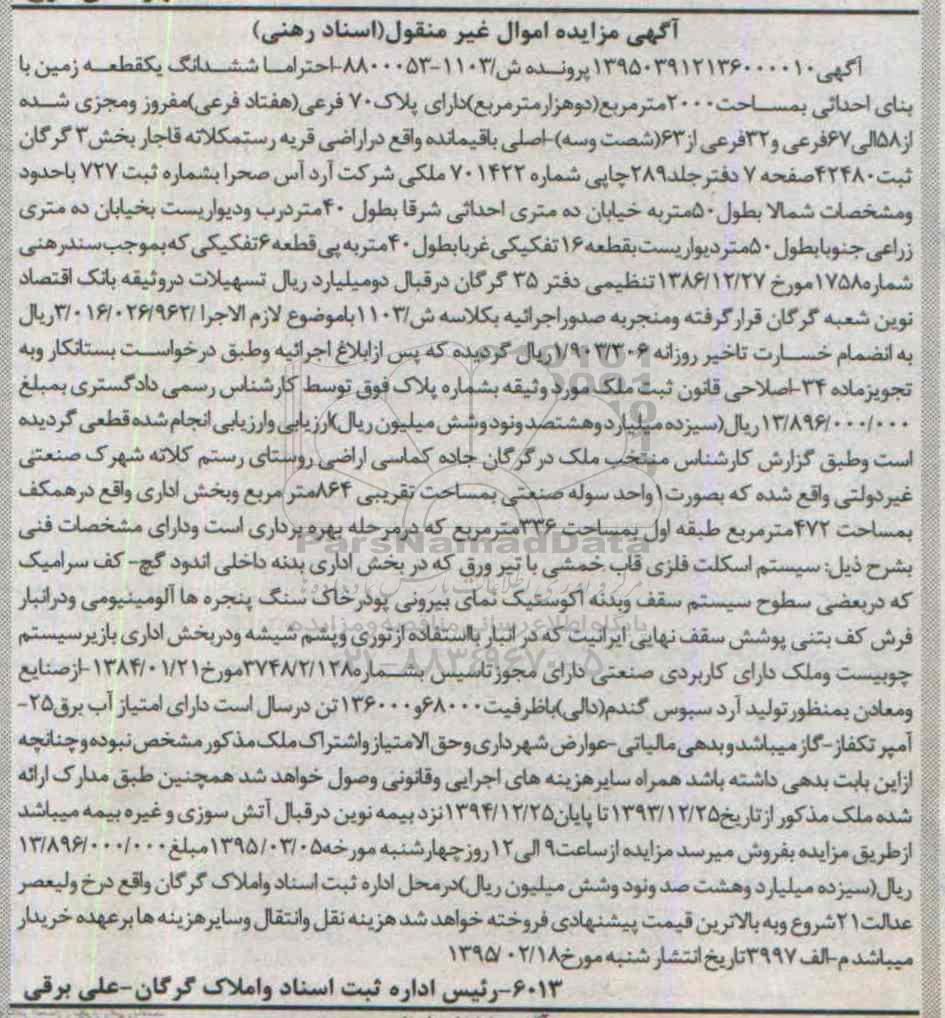 آگهی مزایده اموال غیر منقول(اسناد رهنی)
آگهی۱۳۹۵۰۳۹۱۲۱۳۶۰۰۰۰۱۰ پرونده ش/۱۱۰۳-۸۸۰۰۰۵۳-احتراما ششدانگ یکقطعه زمین با
بنای احداثی بمساحت۲۰۰۰مترمربع(دوهزارمترمربع)دارای پلاک۷۰ فرعی(هفتاد فرعی)مفروز ومجزی شده
از۵۸الی۶۷فرعی و۳۲فرعی از۶۳(شصت وسه)-اصلی باقیمانده واقع دراراضی قریه رستمکلاته قاجار بخش۳ گرگان
ثبت۴۲۴۸۰صفحه ۷ دفترجلد۲۸۹چاپی شماره ۷۰۱۴۲۲ ملکی شرکت آرد آس صحرا بشماره ثبت ۷۲۷ باحدود
ومشخصات شمالا بطول۵۰متربه خیابان ده متری احداثی شرقا بطول ۴۰متردرب ودیواریست بخیابان ده متری
زراعی جنوبابطول۵۰متردیواریست بقطعه۱۶ تفکیکی غربابطول۴۰متربه پی قطعه۶تفکیکی که بموجب سندرهنی
شماره۱۷۵۸مورخ ۱۳۸۶/۱۲/۲۷تنظیمی دفتر ۳۵ گرگان درقبال دومیلیارد ریال تسهیلات دروثیقه بانک اقتصاد
نوین شعبه گرگان قرارگرفته ومنجربه صدوراجرائیه بکلاسه ش/۱۱۰۳باموضوع لازم الاجرا ۳/۰۱۶/۰۲۶/۹۶۲ریال
به انضمام خسارت تاخیر روزانه ۱/۹۰۳/۳۰۶ریال گردیده که پس ازابلاغ اجرائیه وطبق درخواست بستانکار وبه
تجویزماده ۳۴-اصلاحی قانون ثبت ملک مورد وثیقه بشماره پلاک فوق توسط کارشناس رسمی دادگستری بمبلغ
۱۳/۸۹۶/۰۰۰/۰۰۰ ریال(سیزده میلیارد وهشتصد ونود وشش میلیون ریال)ارزیابی وارزیابی انجام شده قطعی گردیده
است وطبق گزارش کارشناس منتخب ملک درگرگان جاده کماسی اراضی روستای رستم کلاته شهرک صنعتی
غیردولتی واقع شده که بصورت۱واحد سوله صنعتی بمساحت تقریبی ۸۶۴متر مربع وبخش اداری واقع درهمکف
بمساحت ۴۷۲مترمربع طبقه اول بمساحت ۳۳۶مترمربع که درمرحله بهره برداری است ودارای مشخصات فنی
بشرح ذیل: سیستم اسکلت فلزی قاب خمشی با تیر ورق که در بخش اداری بدنه داخلی اندود گچ- کف سرامیک
که دربعضی سطوح سیستم سقف وبدنه آکوستیک نمای بیرونی پودرخاک سنگ پنجره ها آلومینیومی ودرانبار
فرش کف بتنی پوشش سقف نهایی ایرانیت که در انبار بااستفاده ازتوری وپشم شیشه ودربخش اداری بازیرسیستم
چوبیست وملک دارای کاربردی صنعتی دارای مجوزتاسیس بشماره۳۷۴۸/۲/۱۲۸مورخ۱۳۸۴/۰۱/۲۱-ازصنایع
ومعادن بمنظورتولید آرد سبوس گندم(دالی)باظرفیت۶۸۰۰۰و۱۳۶۰۰۰تن درسال است دارای امتیاز آب برق۲۵-
آمپر تکفاز-گاز میباشدوبدهی مالیاتی-عوارض شهرداری وحق الامتیاز واشتراک ملک مذکور مشخص نبوده وچنانچه
ازاین بابت بدهی داشته باشد همراه سایرهزینه های اجرایی وقانونی وصول خواهد شد همچنین طبق مدارک ارائه
شده ملک مذکور ازتاریخ۱۳۹۳/۱۲/۲۵تا پایان۱۳۹۴/۱۲/۲۵نزد بیمه نوین درقبال آتش سوزی و غیره بیمه میباشد
ازطریق مزایده بفروش میرسد مزایده ازساعت۹ الی۱۲ روزچهارشنبه مورخه۱۳۹۵/۰۳/۰۵مبلغ۱۳/۸۹۶/۰۰۰/۰۰۰
ریال(سیزده میلیارد وهشت صد ونود وشش میلیون ریال)درمحل اداره ثبت اسناد واملاک گرگان واقع درخ ولیعصر
عدالت۲۱شروع وبه بالاترین قیمت پیشنهادی فروخته خواهد شد هزینه نقل وانتقال وسایرهزینه ها برعهده خریدار
میباشد م-الف ۳۹۹۷تاریخ انتشار شنبه مورخ۱۳۹۵/۰۲/۱۸
۶۰۱۳-رئیس اداره ثبت اسناد واملاک گرگان-علی برقی
ParsNamadData
پایگاه اطلاع رسانی مناقصه و مزایده